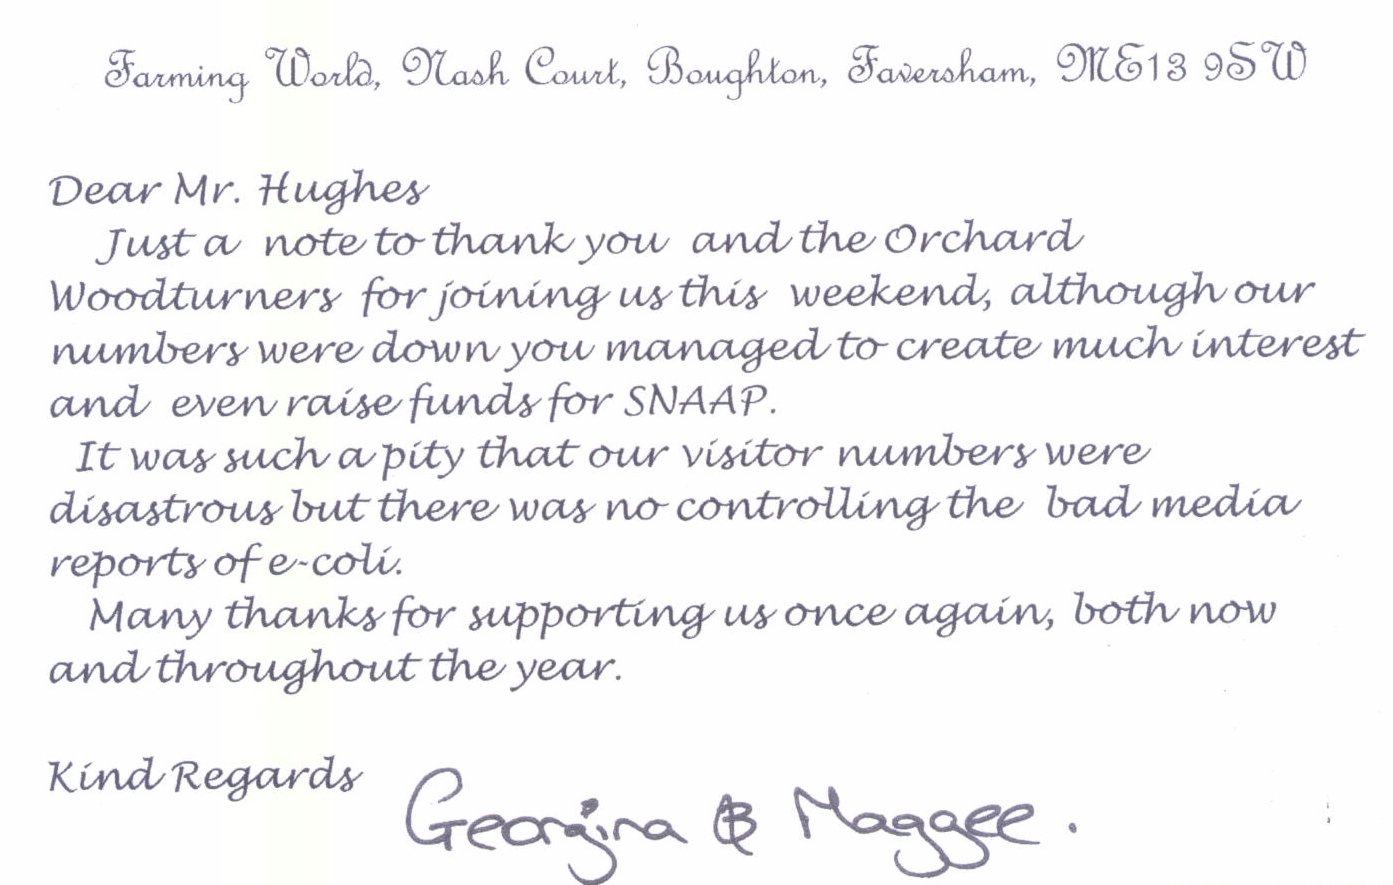 Farming World, Nash Court, Boughton, Faversham, ME13 9SW
Dear Mr. Hughes
Just a note to thank you and the Orchard
Woodturners for joining us this weekend, although our
numbers were down you managed to create much interest
and even raise funds for SNAAP.
It was such a pity that our visitor numbers were
disastrous but there was no controlling the bad media
reports of e-coli.
Many thanks for supporting us once again, both now
and throughout the year.
Kind Regards
Georgina & Maggee.